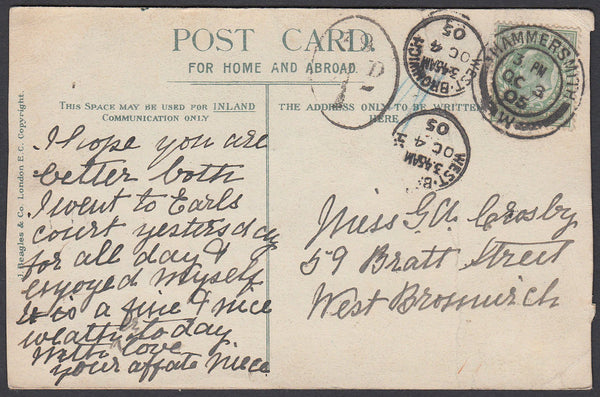 POST CARD
FOR HOME AND ABROAD.
THIS SPACE MAY BE USED FOR INLAND
COMMUNICATION ONLY
THE ADDRESS ONLY TO BE WRITTEN
HERE
J. Beagles & Co. London E.C. Copyright.
I hope you are
better both
I went to Earls
court yesterday
for all day &
enjoyed myself
it is a fine & nice
weather to day
With love
your affate niece
Miss G.A. Crosby
59 Bratt Street
West Bromwich
WEST-BROMWICH
3.45AM
OC 4
05
WEST-B
3.45AM
OC 4
05
HAMMERSMITH
OC 3
05
D